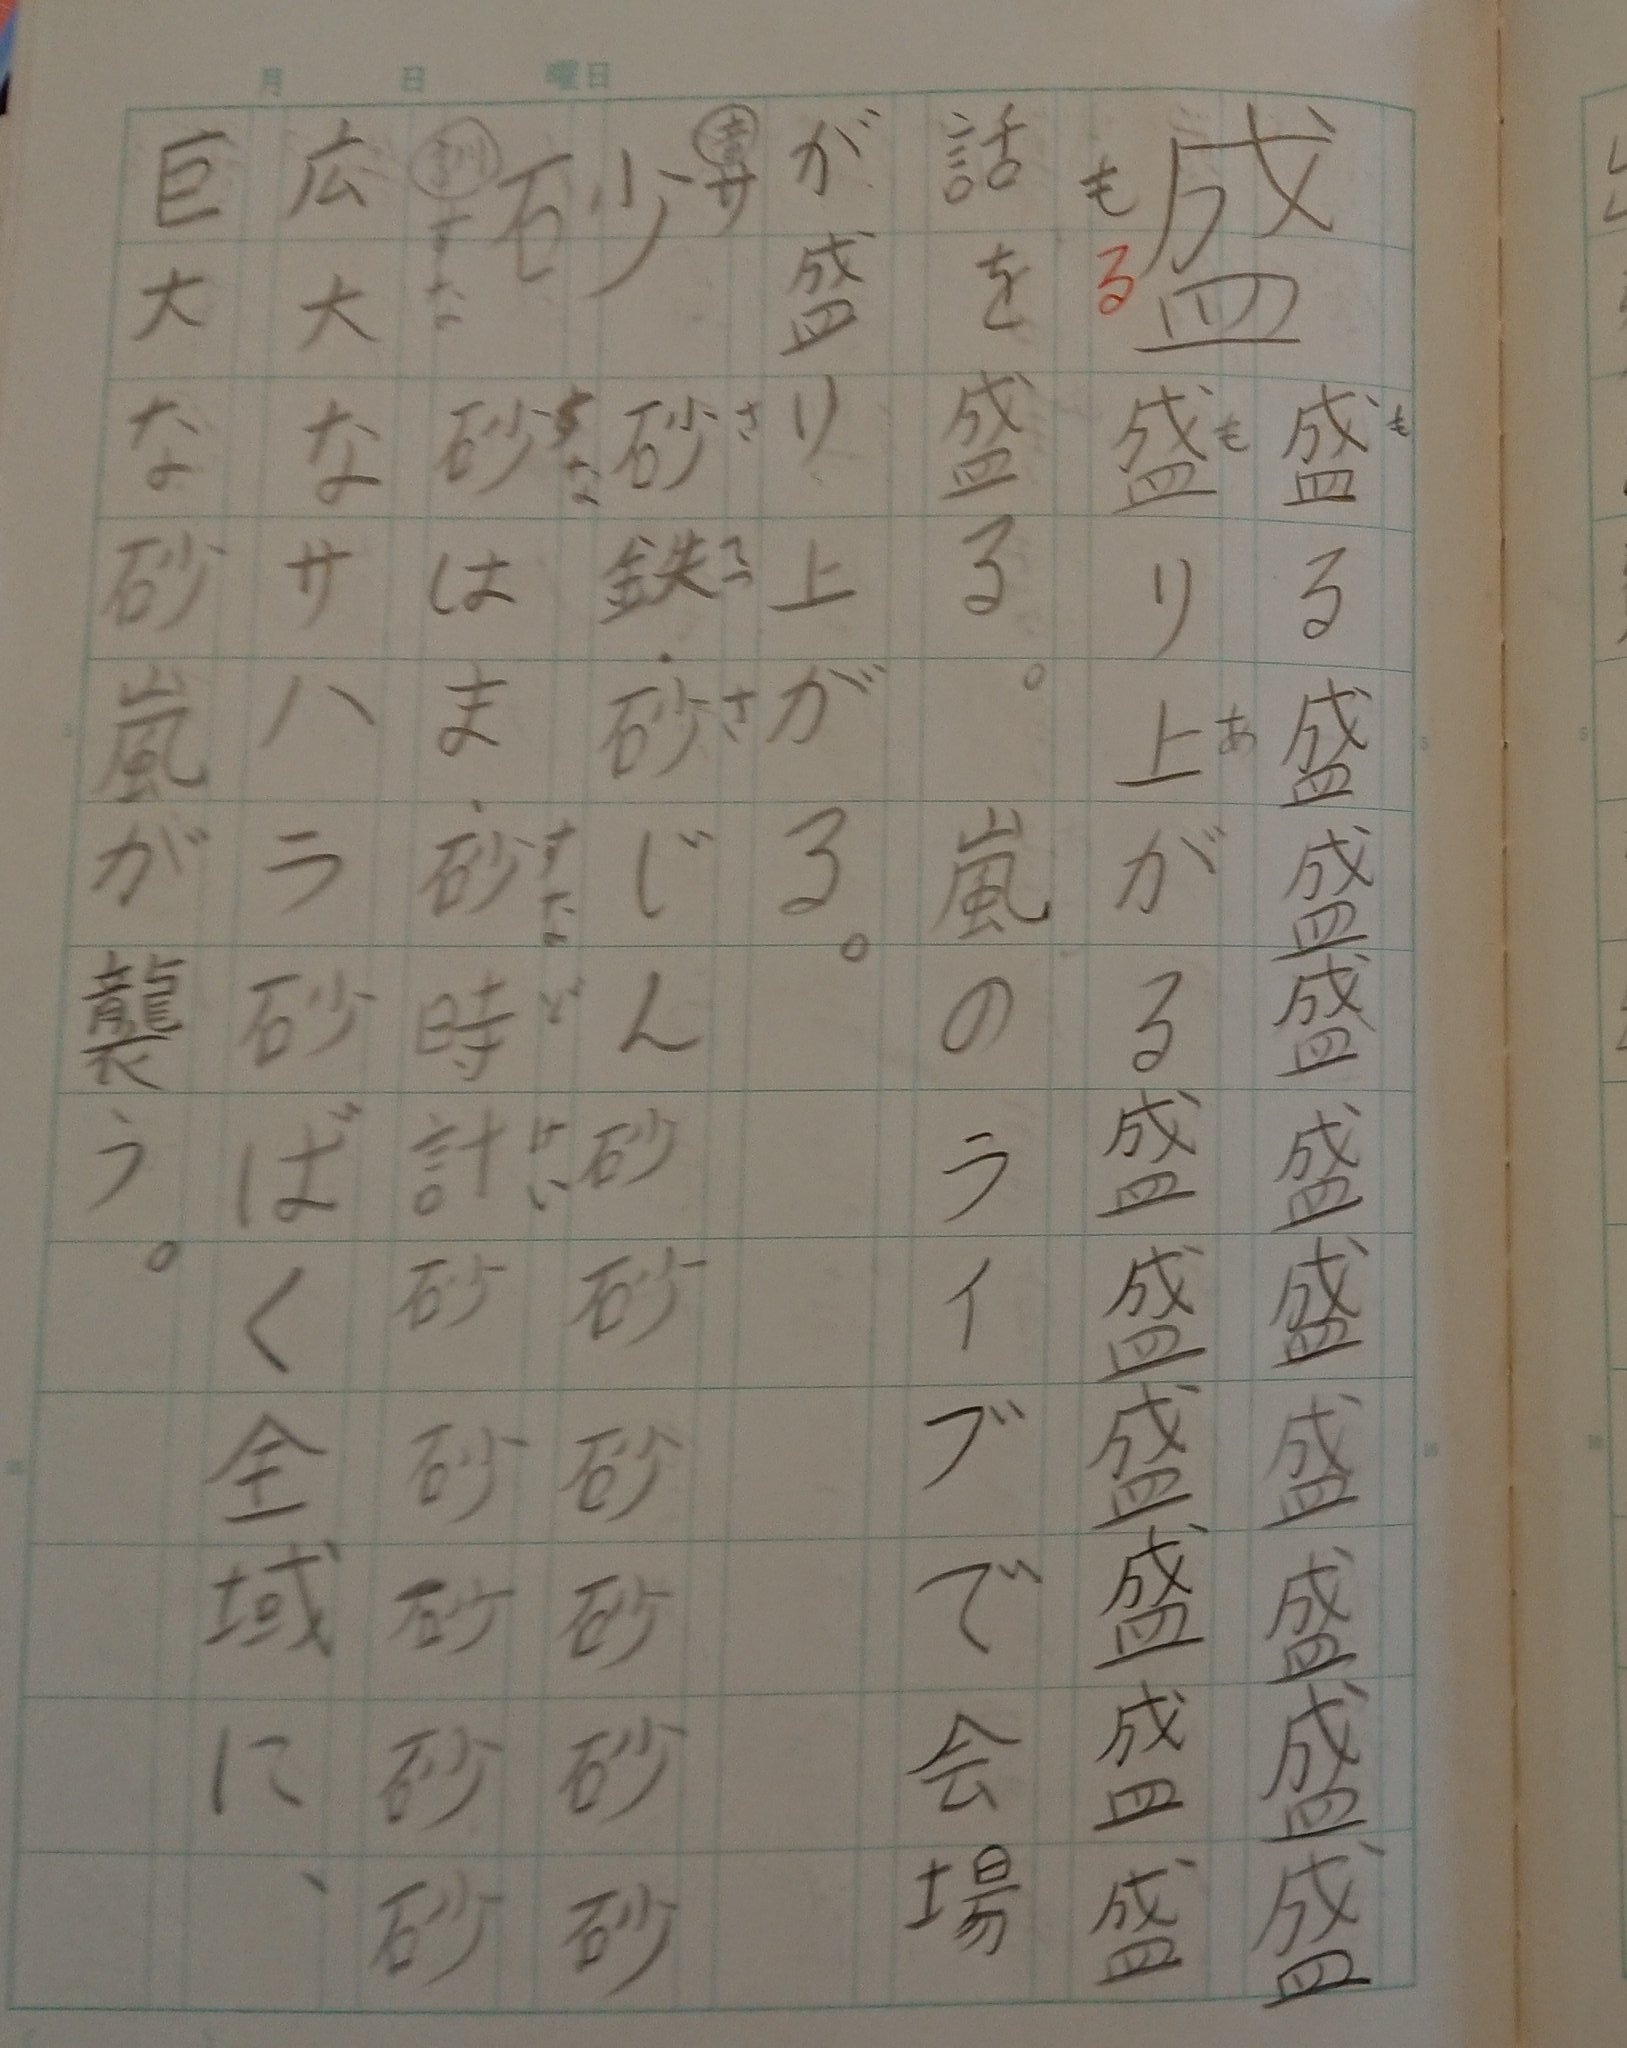 月 日 曜日
盛
もる
盛る盛盛盛盛盛盛盛盛盛
も
盛り上がる盛盛盛盛盛盛
も
あ
話を盛る。嵐のライブで会場
が盛り上がる。
砂
音 サ
訓 すな
砂鉄・砂じん砂砂砂砂砂砂
さ
てつ
さ
砂はま・砂時計砂砂砂砂砂
すな
すな
ど
けい
広大なサハラ砂ばく全域に、
巨大な砂嵐が襲う。